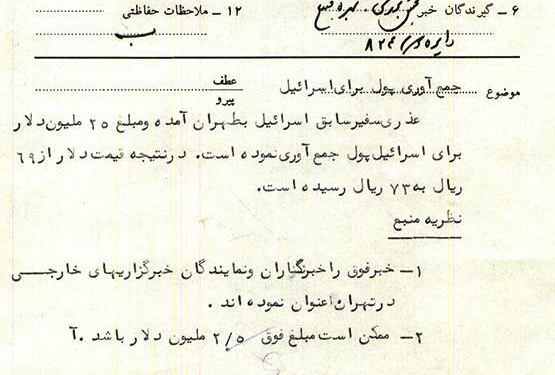 ۶ – گیرندگان خبر
۱۲ – ملاحظات حفاظتی
ب
۸۲۴
موضوع جمع آوری پول برای اسرائیل
عطف
پیرو
عذری سفیر سابق اسرائیل بطهران آمده و مبلغ ۲۵ ملیون دلار
برای اسرائیل پول جمع آوری نموده است. در نتیجه قیمت دلار از ۶۹
ریال به ۷۳ ریال رسیده است.
نظریه منبع
۱– خبر فوق را خبرنگاران و نمایندگان خبرگزاریهای خارجی
در تهران عنوان نموده اند .
۲– ممکن است مبلغ فوق ۲/۵ ملیون دلار باشد .آ